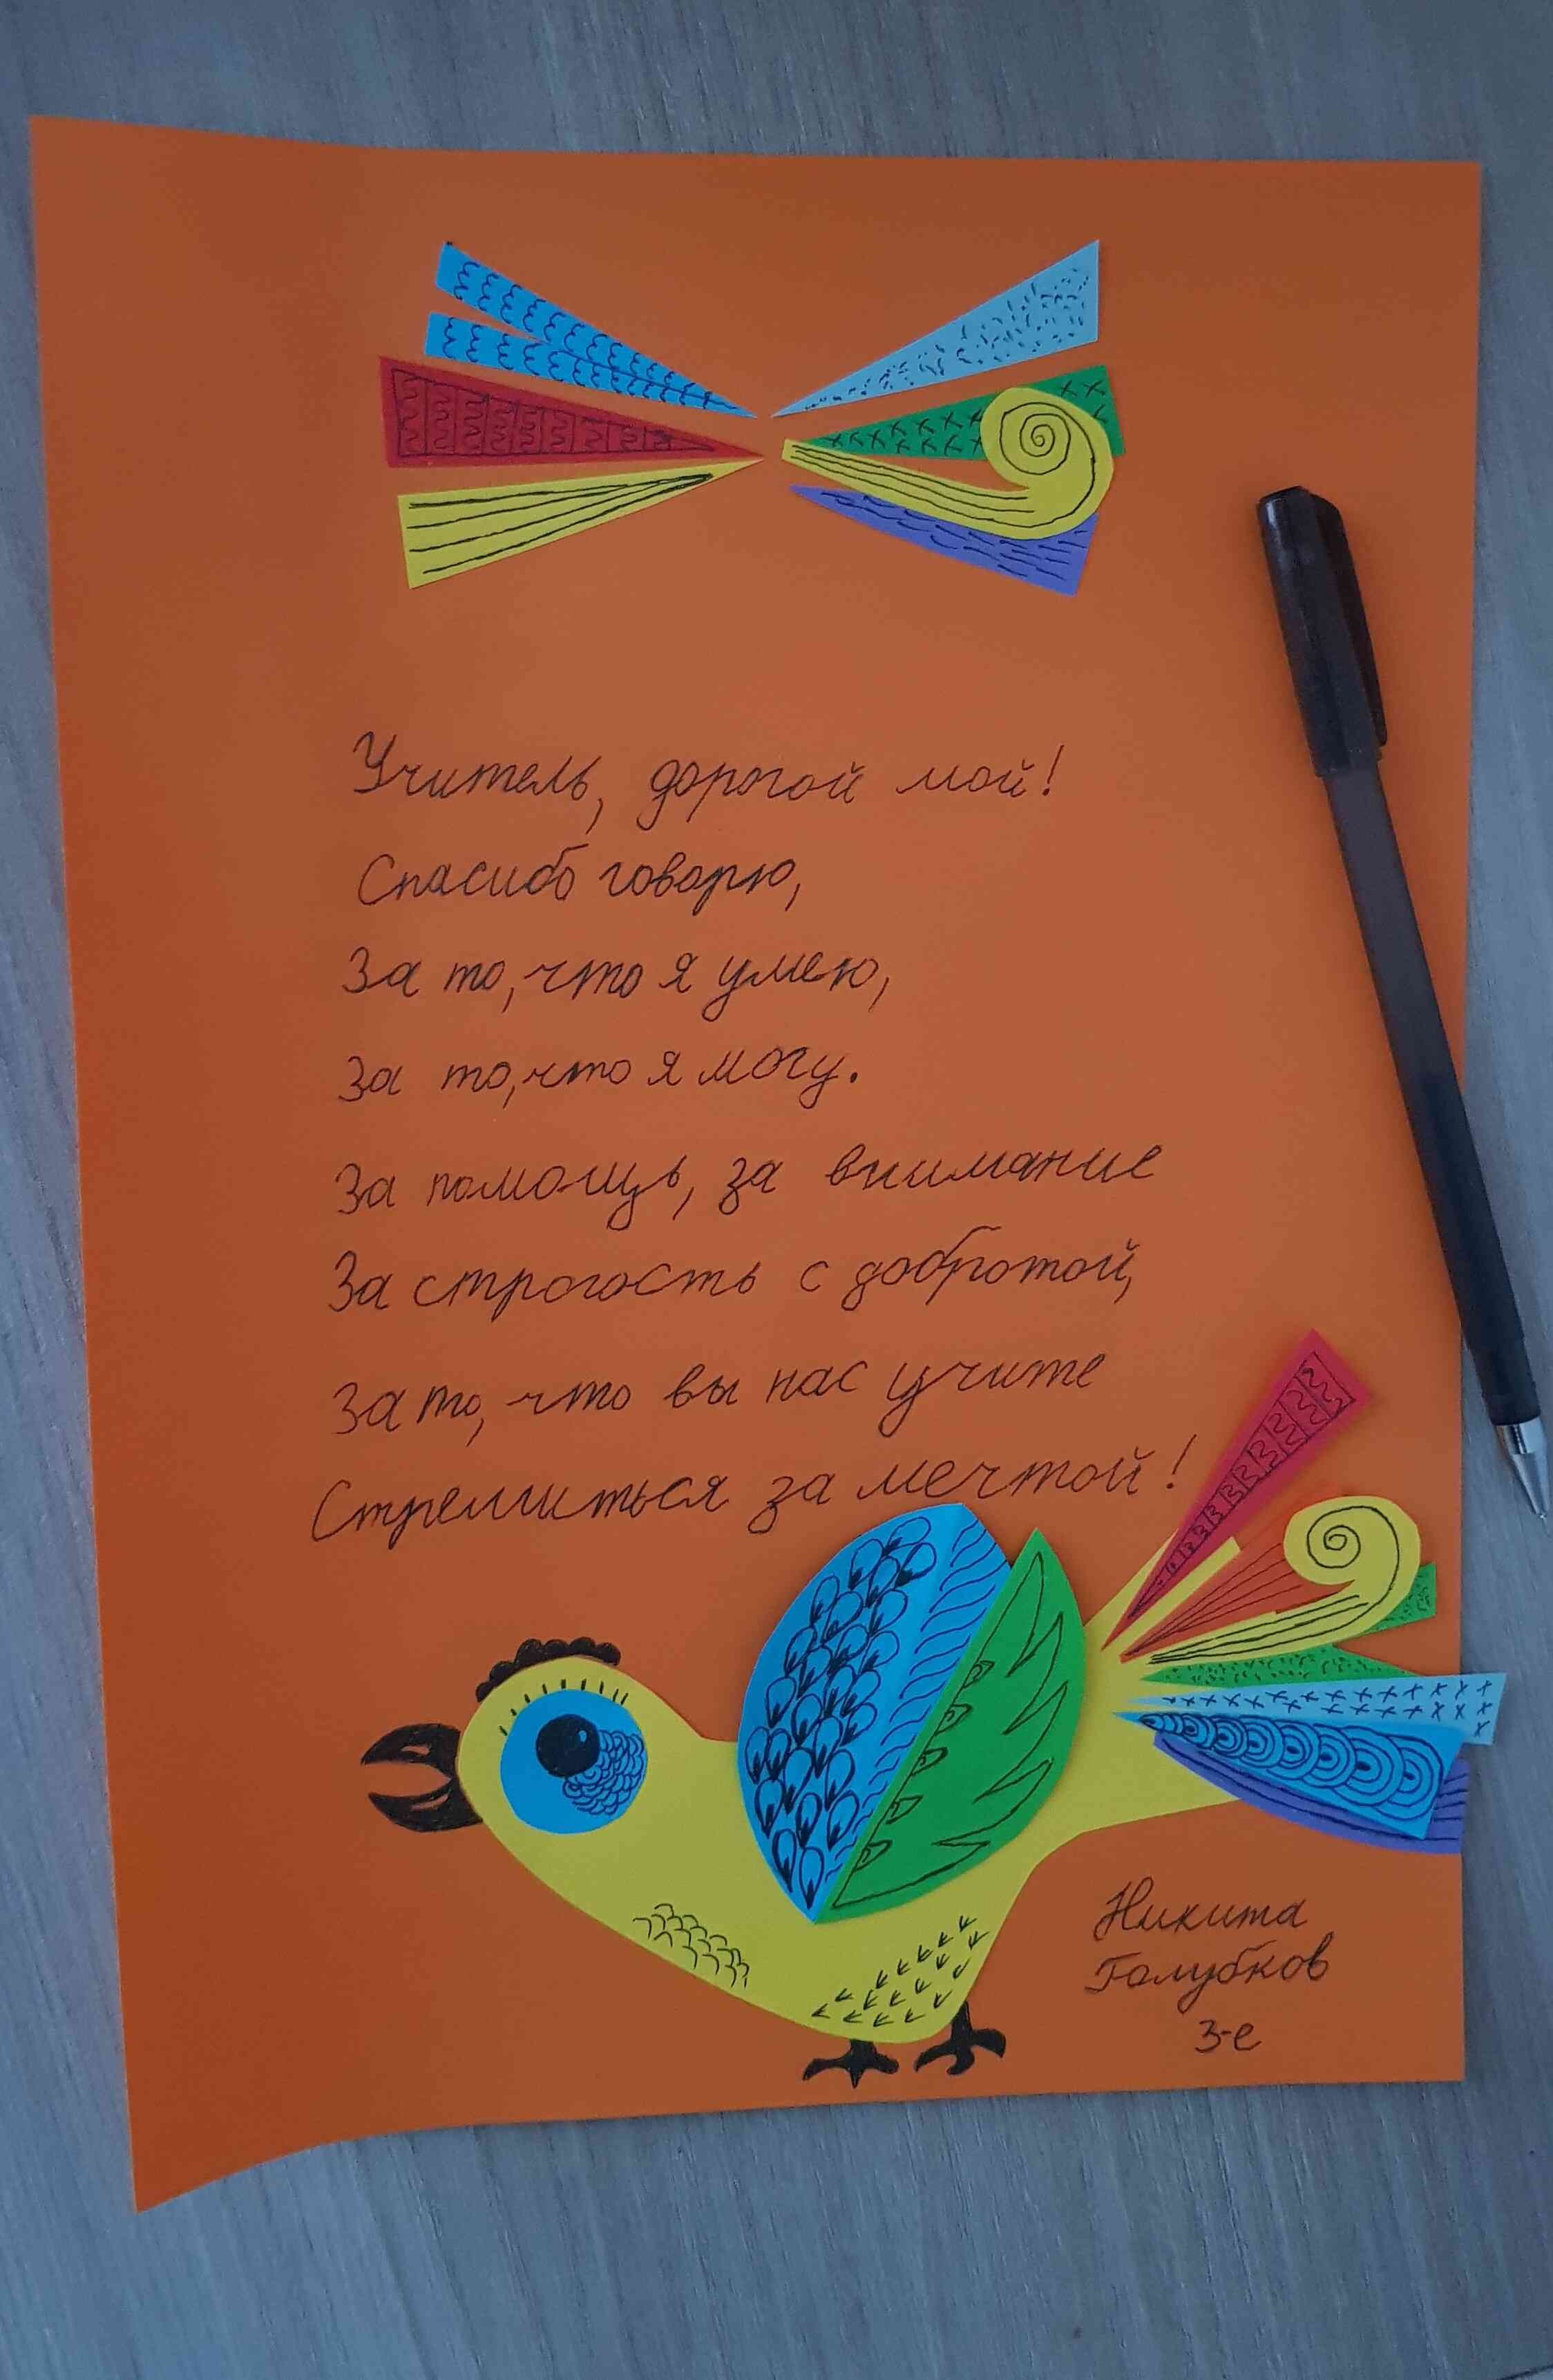 Учитель, дорогой мой!
Спасибо говорю,
За то, что я умею,
За то, что я могу.
За помощь, за внимание
За строгость с добротой,
За то, что вы нас учите
Стремиться за мечтой!
Никита
Голубков
3-е